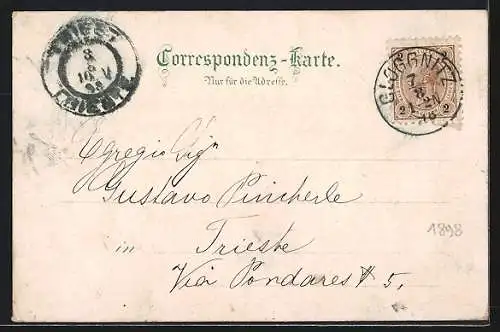 TRIEST
8
8
10.V
98
TRIESTE
Correspondenz-Karte.
Nur für die Adresse.
GLOGGNITZ
7
8
98
2 2
Egregio Sigr
Gustavo Pincherle
in
Trieste
Via Pondares 5.
1898